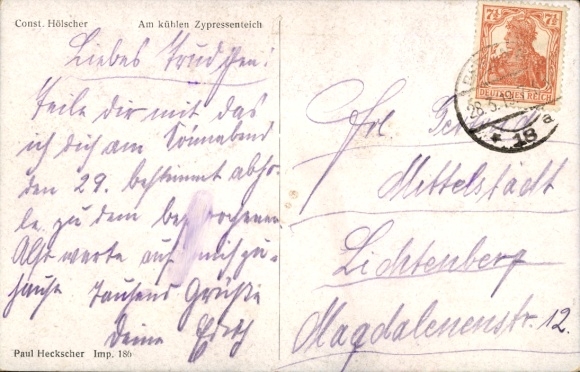 Const. Hölscher
Am kühlen Zypressenteich
Liebes Trudchen!
Teile dir mit das
ich dich am Sonnabend
den 29. bestimmt abho-
le zu dem besprochenen
Also warte auf mich zu-
hause Tausend Grüße
Deine Edith
Paul Heckscher Imp. 186
7½ 7½
DEUTSCHES REICH
26.5.18
* 18 a
Frl.
Mittelstädt
Lichtenberg
Magdalenenstr. 12.